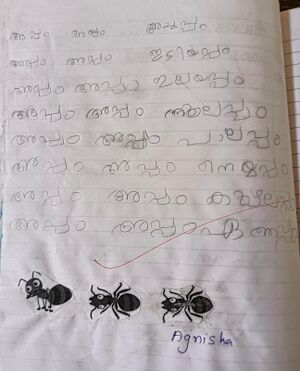 അപ്പം അപ്പം അച്ചപ്പം
അപ്പം അപ്പം ഇടിയപ്പം
അപ്പം അപ്പം ഇലയപ്പം
അപ്പം അപ്പം
അപ്പം അപ്പം പാലപ്പം
അപ്പം അപ്പം നെയ്യപ്പം
അപ്പം അപ്പം
അപ്പം അപ്പം
Agnisha